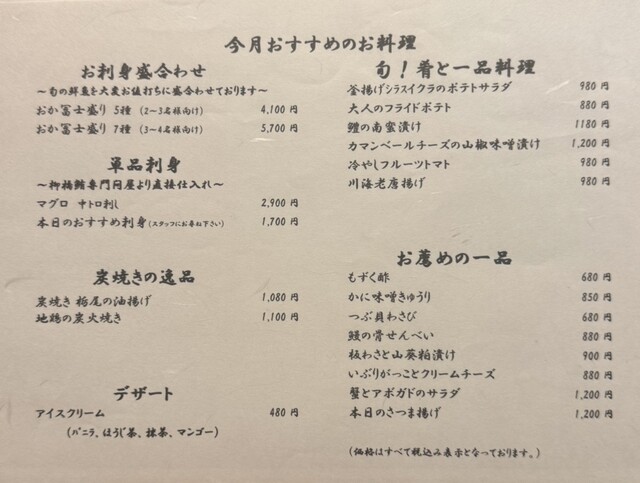 今月おすすめのお料理
お刺身盛合わせ
～旬の鮮魚を大変お値打ちに盛合わせております～
おか冨士盛り 5種 (2～3名様向け) 4,100 円
おか冨士盛り 7種 (3～4名様向け) 5,700 円
単品刺身
～柳橋鮪専門問屋より直接仕入れ～
マグロ 中トロ刺し 2,900 円
本日のおすすめ刺身(スタッフにお尋ね下さい) 1,700 円
炭焼きの逸品
炭焼き 栃尾の油揚げ 1,080 円
地鶏の炭火焼き 1,100 円
デザート
アイスクリーム 480 円
(バニラ、ほうじ茶、抹茶、マンゴー)
旬！肴と一品料理
釜揚げシラスイクラのポテトサラダ 980 円
大人のフライドポテト 880 円
鱧の南蛮漬け 1180 円
カマンベールチーズの山椒味噌漬け 1,200 円
冷やしフルーツトマト 980 円
川海老唐揚げ 980 円
お薦めの一品
もずく酢 680 円
かに味噌きゅうり 850 円
つぶ貝わさび 680 円
鰻の骨せんべい 880 円
板わさと山葵粕漬け 900 円
いぶりがっことクリームチーズ 880 円
蟹とアボガドのサラダ 1,200 円
本日のさつま揚げ 1,200 円
(価格はすべて税込み表示となっております。)